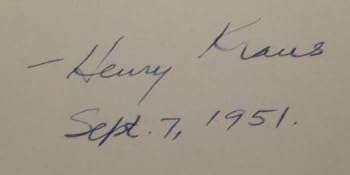 - Henry Kraus
Sept. 7, 1951.